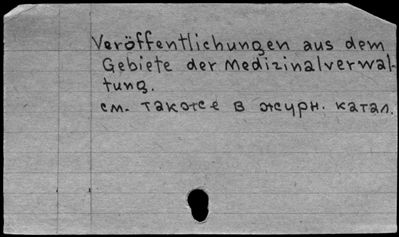 Veröffentlichungen aus dem
Gebiete der Medizinalverwal-
tung.
см. также в журн. катал.